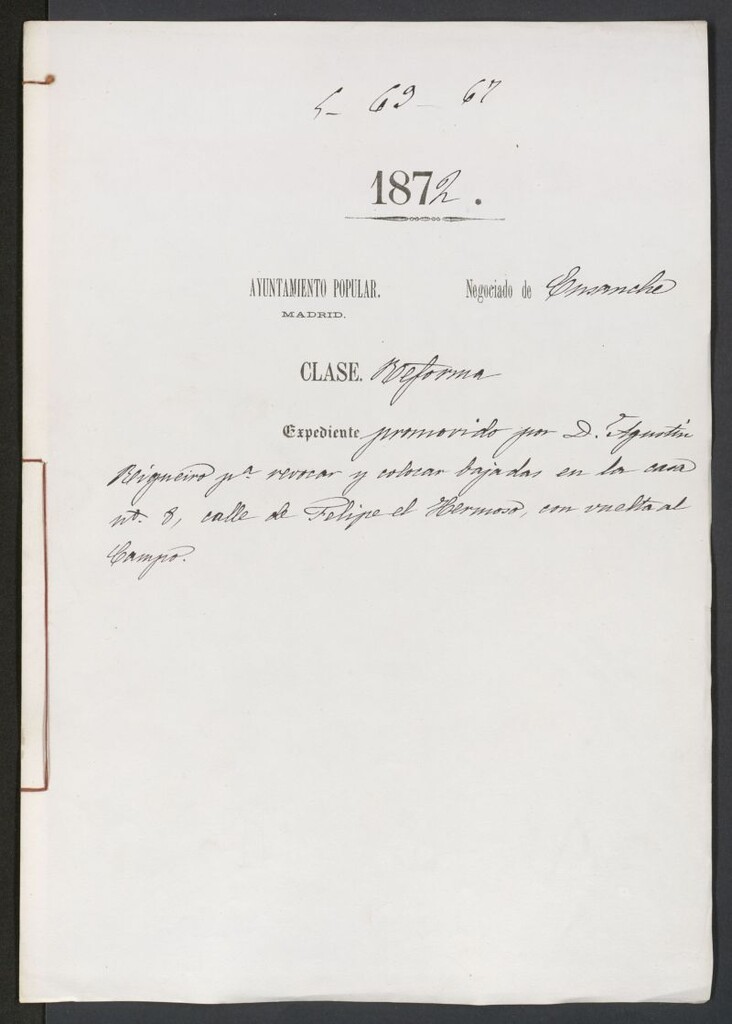 5- 69- 67
1872.
AYUNTAMIENTO POPULAR. Negociado de Ensanche
MADRID.
CLASE. Reforma
Expediente promovido por D. Agustin
Reigueiro pª revocar y colocar bajadas en la casa
nº. 8, calle de Felipe el Hermoso, con vuelta al
Campo.